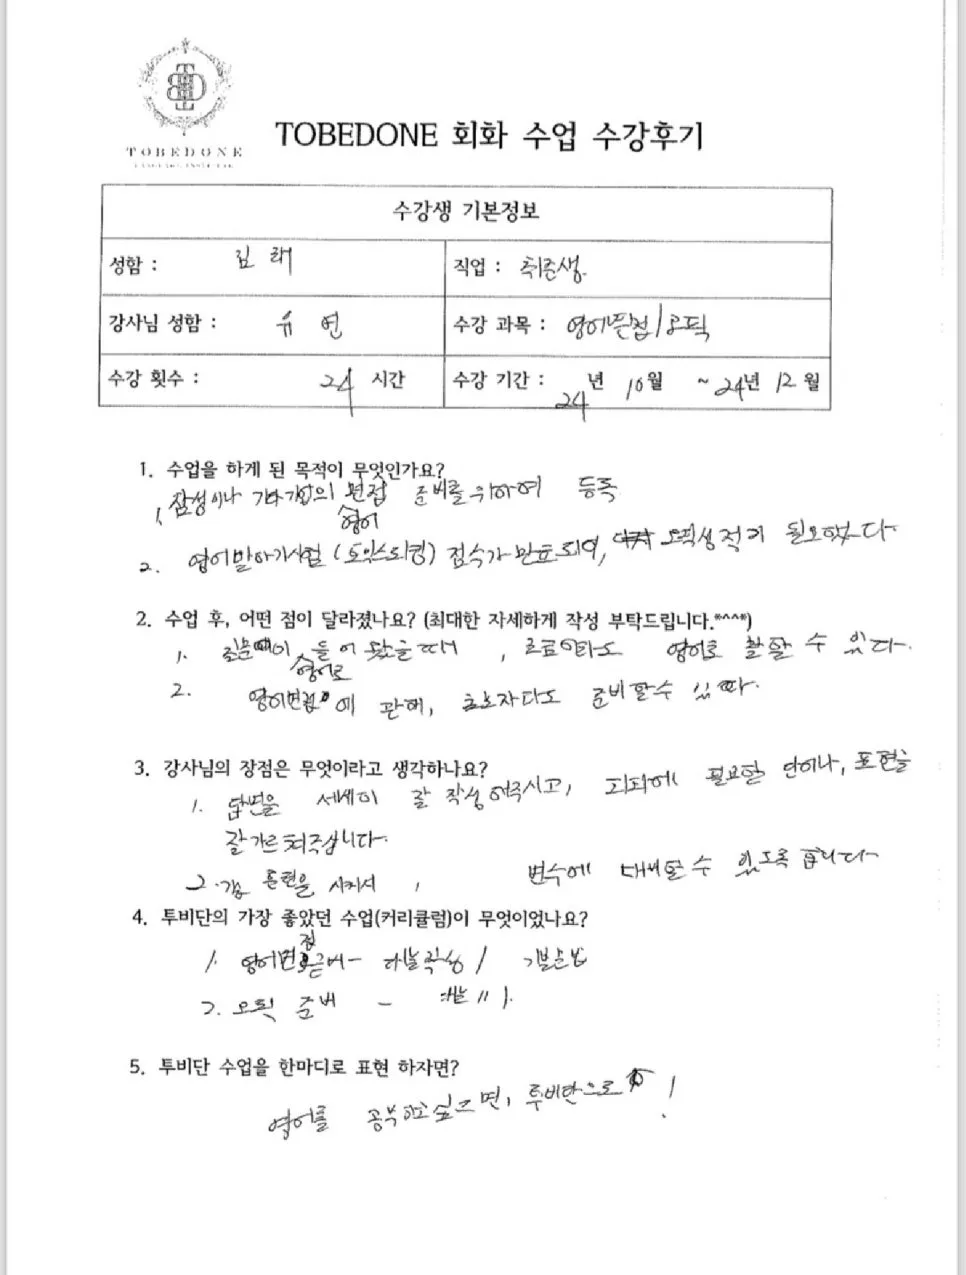 TBD
TOBEDONE
TOBEDONE 회화 수업 수강후기
수강생 기본정보
성함 : 김 래
직업 : 취준생
강사님 성함 : 유 연
수강 과목 : 영어면접/오픽
수강 횟수 : 24 시간
수강 기간 : 24년 10월 ~ 24년 12월
1. 수업을 하게 된 목적이 무엇인가요?
1. 삼성이나 기타기업의 영어 면접 준비를 위하여 등록
2. 영어말하기시험 (토익스피킹) 점수가 만료되어, 오픽성적이 필요했다
2. 수업 후, 어떤 점이 달라졌나요? (최대한 자세하게 작성 부탁드립니다.*^^*)
1. 질문이 영어로 들어 왔을 때, 영어로 말할 수 있다.
2. 영어면접에 관해, 초보자라도 준비할 수 있다.
3. 강사님의 장점은 무엇이라고 생각하나요?
1. 답변을 세세히 잘 작성해주시고, 필요할 단어나, 표현을
잘 가르쳐주십니다.
2. 훈련을 시켜서, 변수에 대비할 수 있도록 합니다
4. 투비단의 가장 좋았던 수업(커리큘럼)이 무엇이었나요?
1. 영어면접 - /
2. 오픽 준비 - 〃
5. 투비단 수업을 한마디로 표현 하자면?
영어를 공부하고 싶으면, 투비단으로!